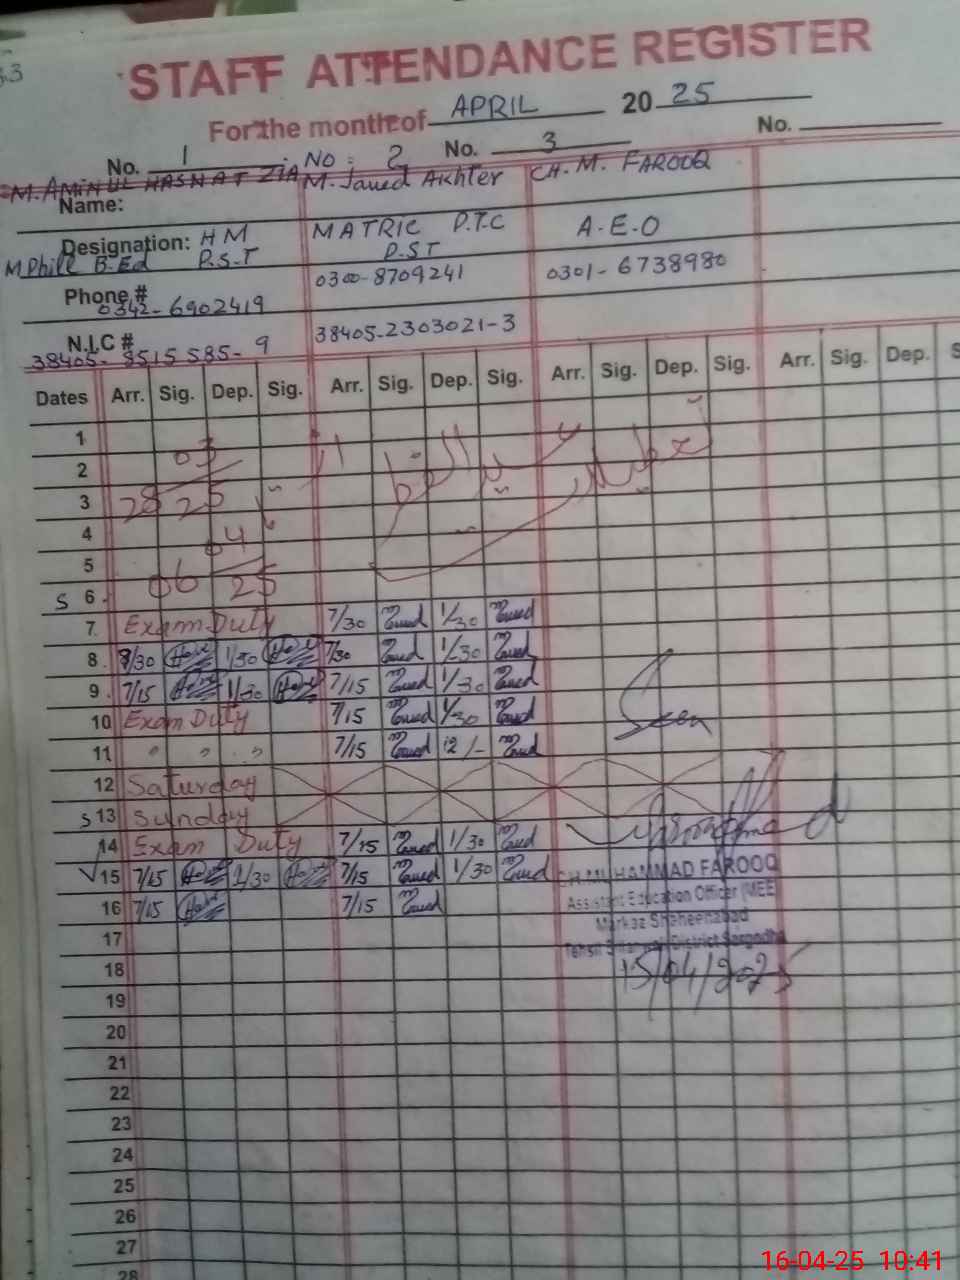 33
STAFF ATTENDANCE REGISTER
For the month of APRIL 2025
No. 1 NO: 2 No. 3 No.
Name: M. AMINUL HASNAT ZIA M. Javed Akhter CH. M. FAROOQ
Designation: HM MATRIC P.T.C A.E.O
M Phill B.Ed P.S.T P.ST
Phone # 0342-6902419 0300-8709241 0301-6738980
N.I.C # 38405-8515585-9 38405-2303021-3
Dates Arr. Sig. Dep. Sig. Arr. Sig. Dep. Sig. Arr. Sig. Dep. Sig. Arr. Sig. Dep. S
1
2 03
3 28 25
4 04
5
S 6 06 25
7 Exam Duty 7/30 1/30
8 7/30 1/30 7/30 1/30
9 7/15 1/30 7/15 1/30
10 Exam Duty 7/15 1/30 Seen
11 " " " 7/15 12/-
12 Saturday
S 13 Sunday
14 Exam Duty 7/15 1/30
15 7/15 1/30 7/15 1/30 CH. MUHAMMAD FAROOQ
16 7/15 7/15 Assistant Education Officer (MEE)
Markaz Shaheenabad
17 Tehsil District Sargodha
18 15/04/2025
19
20
21
22
23
24
25
26
27
28
16-04-25 10:41